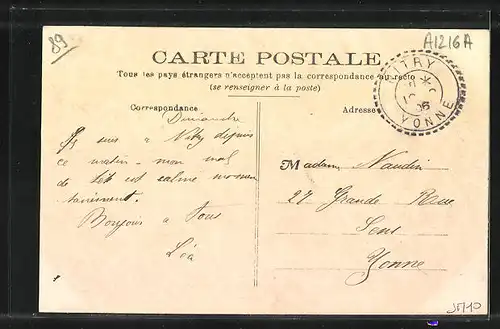 89
A1216A
CARTE POSTALE
Tous les pays étrangers n'acceptent pas la correspondance au recto
(se renseigner à la poste)
Correspondance
Adresse
VITRY
06
YONNE
Dimanche
Je suis a Vitry depuis
ce matin - mon mal
de tête est calmé momen
tanément.
Bonjour a tous
Léa
Madame Naudin
27 Grande Rue
Sens
Yonne